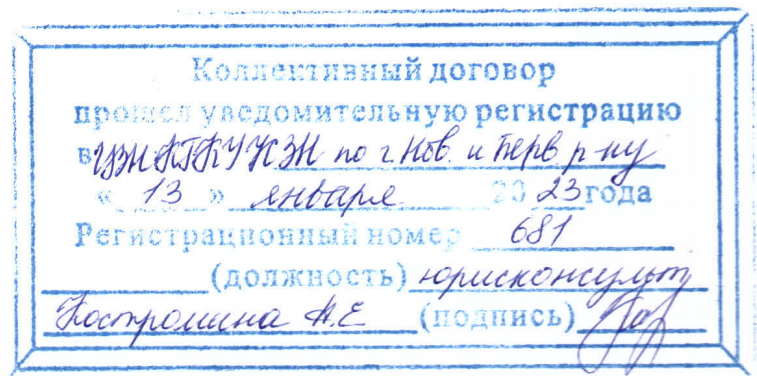 Коллективный договор
прошел уведомительную регистрацию
в ЦЗН КГКУ КЗН по г. Нов. и Перв р-ну
« 13 » января 20 23 года
Регистрационный номер 681
(должность) юрисконсульт
Костромина А.Е (подпись)